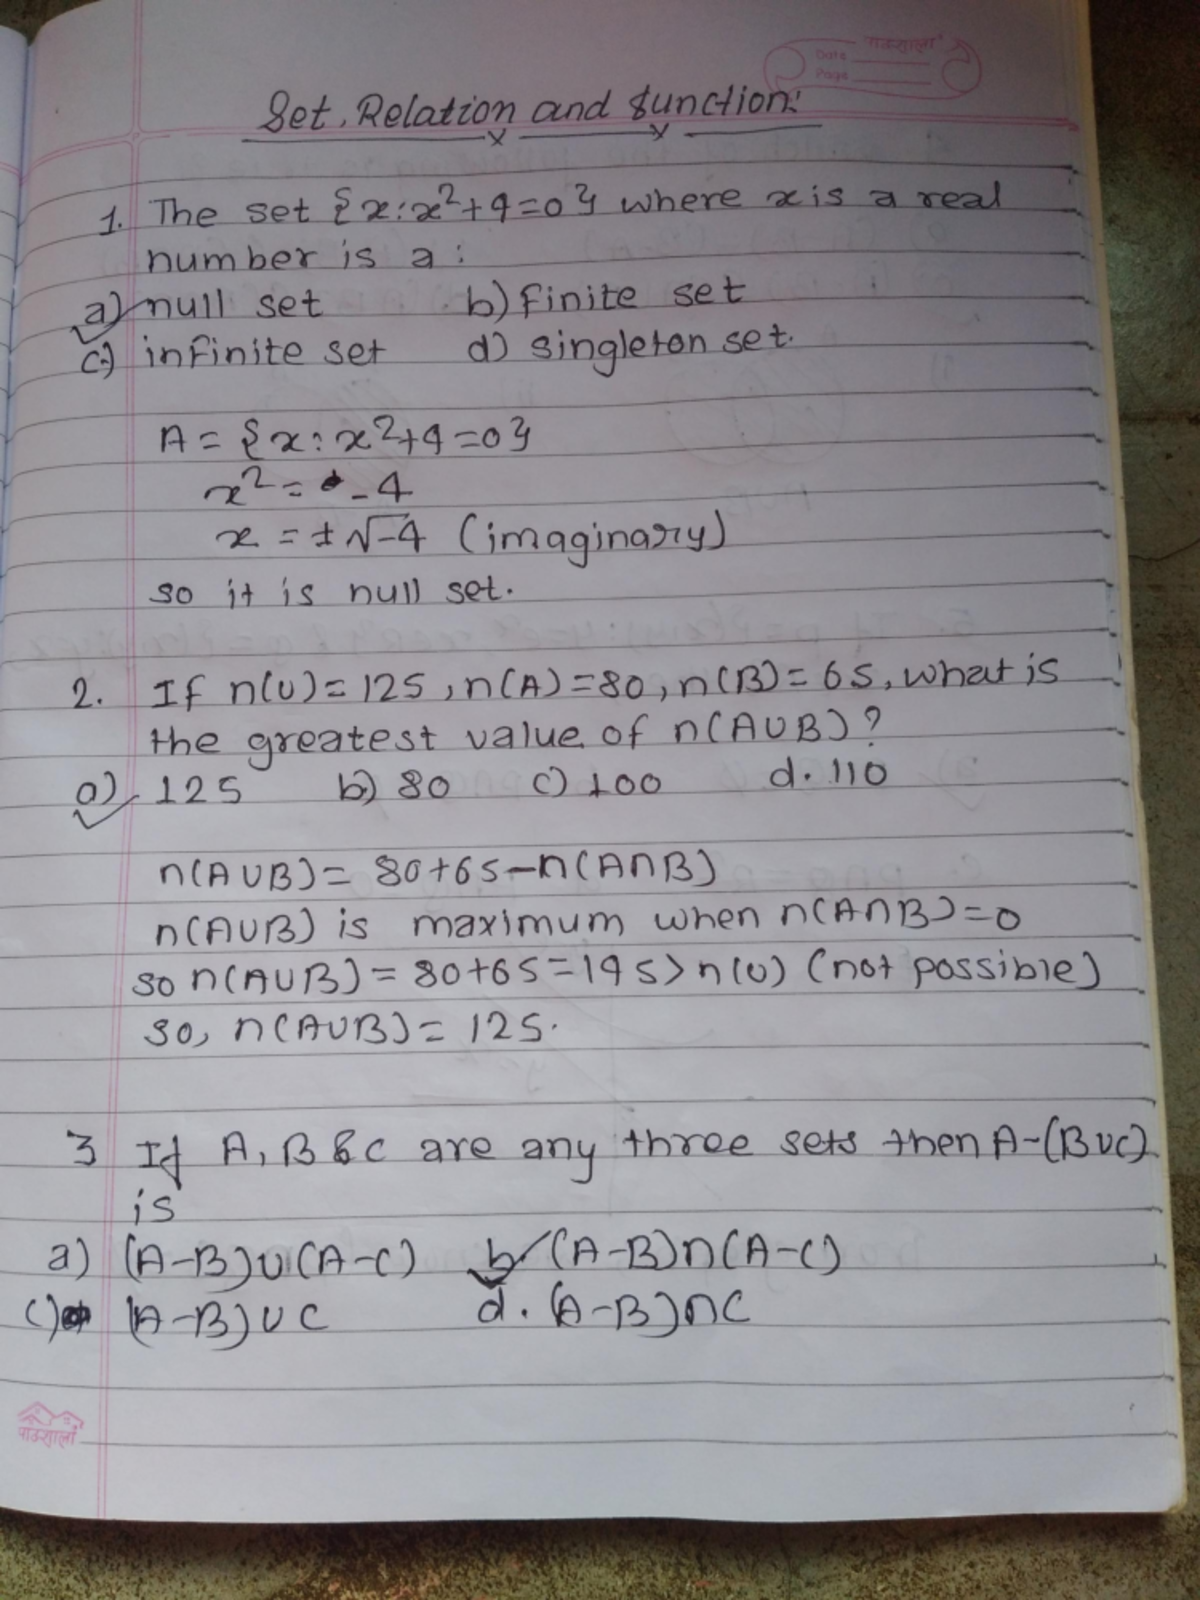 पाठशाला
Date
Page
Set, Relation and function:
1. The set {x:x²+4=0} where x is a real
number is a:
a) null set b) finite set
c) infinite set d) singleton set.
A = {x: x²+4=0}
x² = -4
x = ±√-4 (imaginary)
so it is null set.
2. If n(U)=125, n(A)=80, n(B)=65, what is
the greatest value of n(A∪B)?
a) 125 b) 80 c) 100 d. 110
n(A∪B) = 80+65-n(A∩B)
n(A∪B) is maximum when n(A∩B)=0
so n(A∪B) = 80+65=145>n(U) (not possible)
so, n(A∪B) = 125.
3 If A, B & C are any three sets then A-(B∪C)
is
a) (A-B)∪(A-C) b (A-B)∩(A-C)
c) (A-B)∪C d. (A-B)∩C
पाठशाला